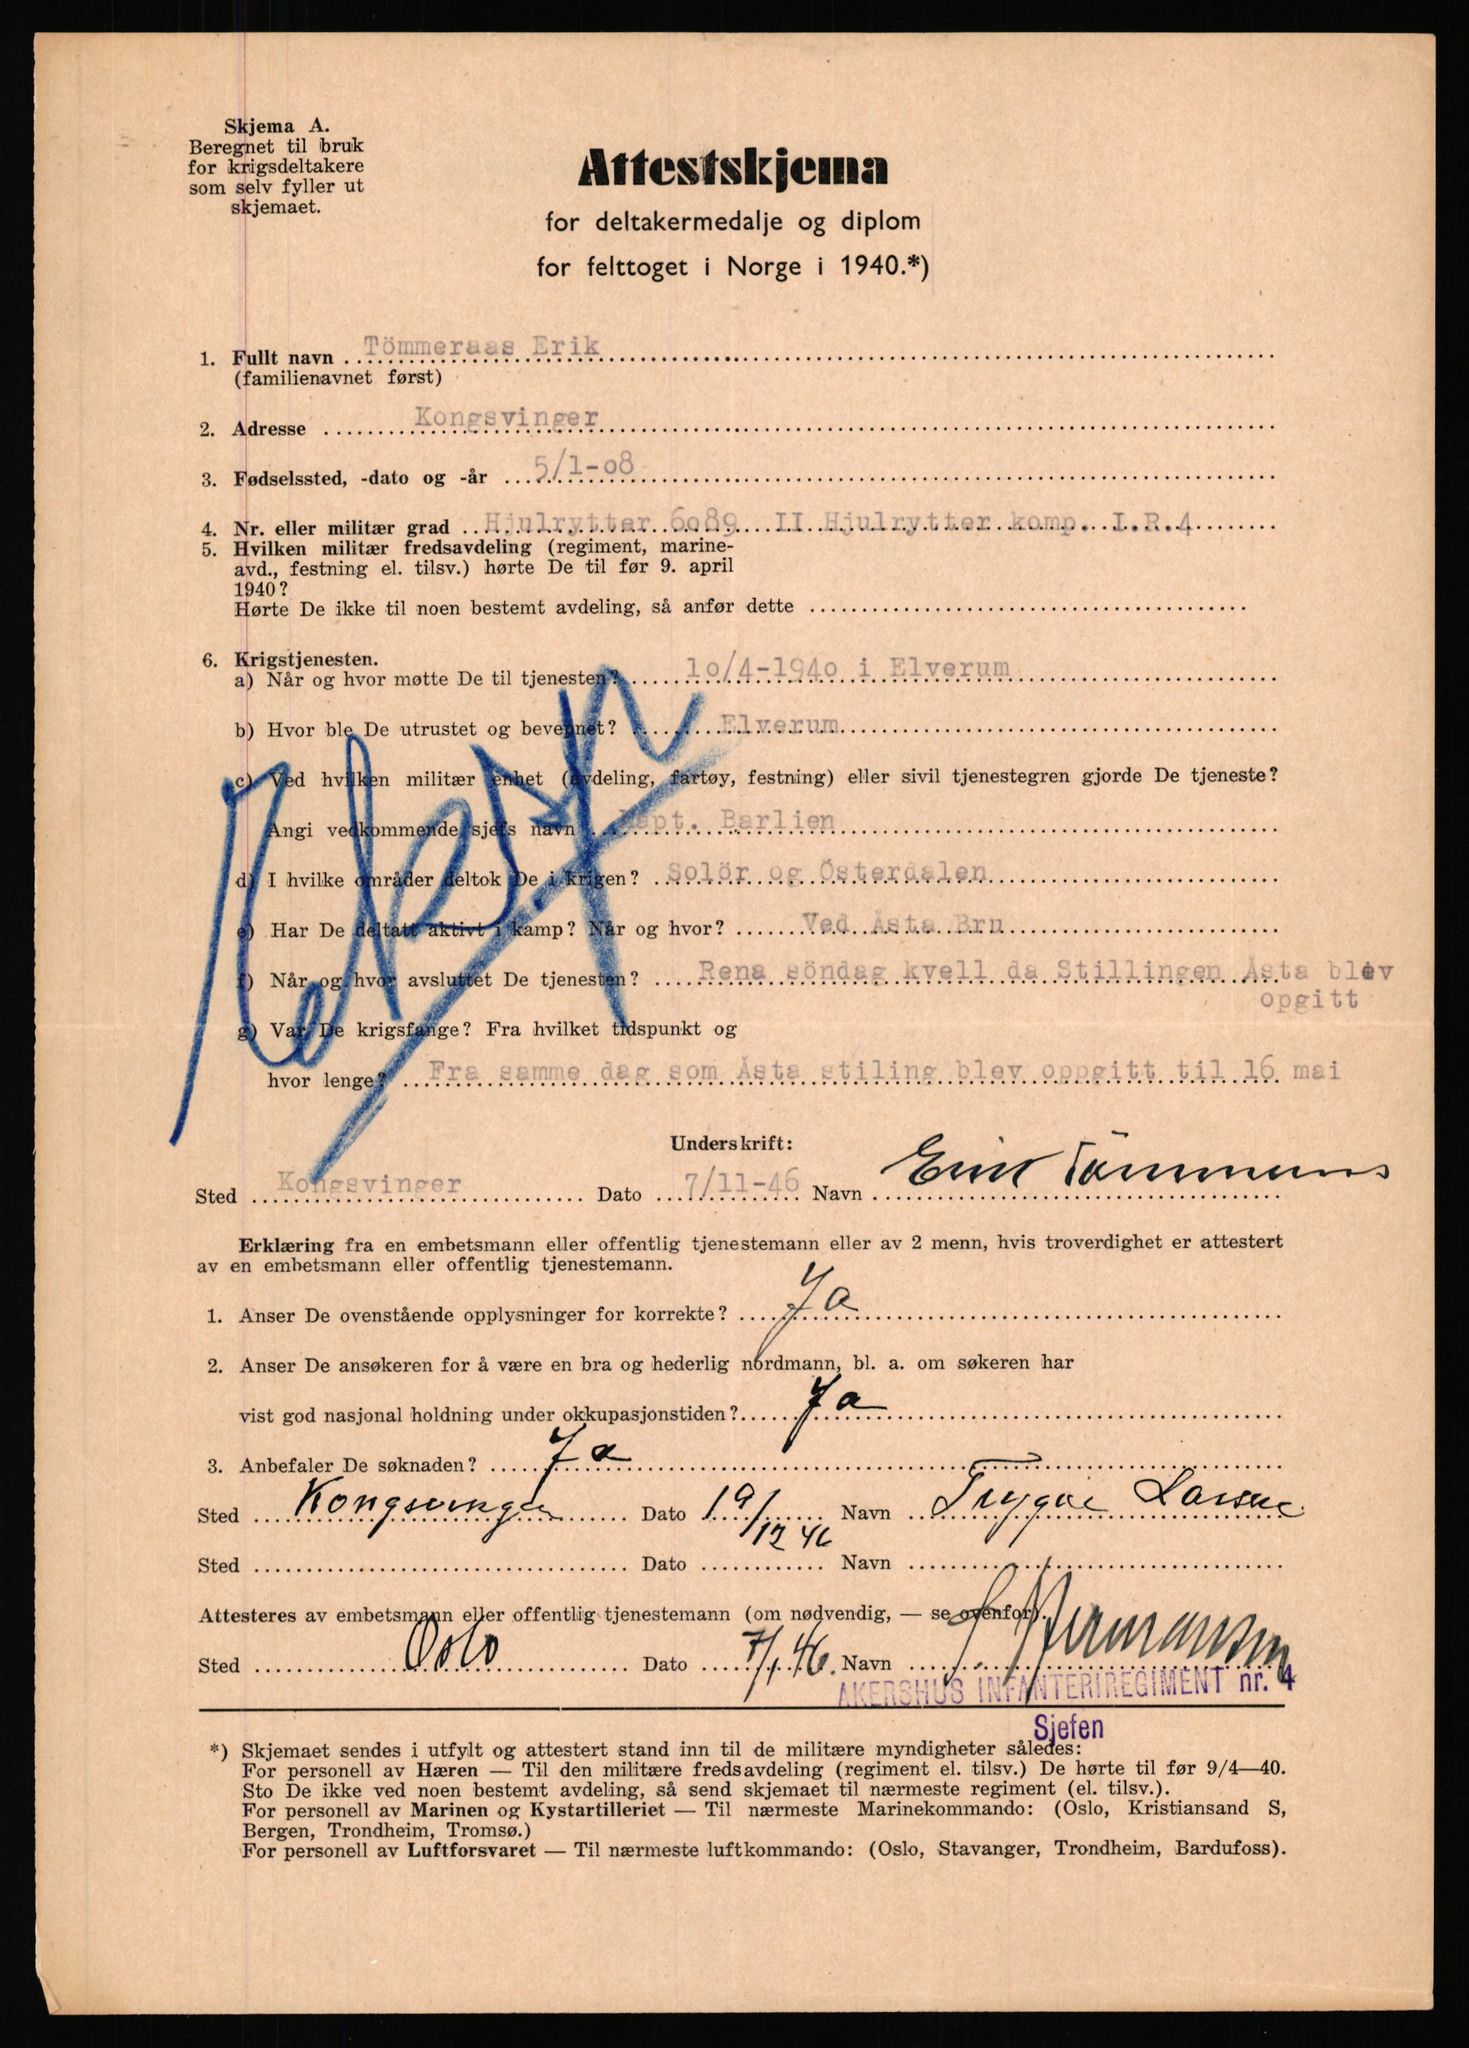 Skjema A.
Beregnet til bruk
for krigsdeltakere
som selv fyller ut
skjemaet.
Attestskjema
for deltakermedalje og diplom
for felttoget i Norge i 1940.*)
1. Fullt navn Tömmeraas Erik
(familienavnet først)
2. Adresse Kongsvinger
3. Fødselssted, -dato og -år 5/1-08
4. Nr. eller militær grad Hjulrytter 6089 II Hjulrytter komp. I.R.4
5. Hvilken militær fredsavdeling (regiment, marine-
avd., festning el. tilsv.) hørte De til før 9. april
1940?
Hørte De ikke til noen bestemt avdeling, så anfør dette
6. Krigstjenesten.
a) Når og hvor møtte De til tjenesten? 10/4-1940 i Elverum
b) Hvor ble De utrustet og bevepnet? Elverum
c) Ved hvilken militær enhet (avdeling, fartøy, festning) eller sivil tjenestegren gjorde De tjeneste?
Angi vedkommende sjefs navn Kapt. Barlien
d) I hvilke områder deltok De i krigen? Solör og Österdalen
e) Har De deltatt aktivt i kamp? Når og hvor? Ved Åsta Bru
f) Når og hvor avsluttet De tjenesten? Rena söndag kvell da Stillingen Åsta blev
opgitt
g) Var De krigsfange? Fra hvilket tidspunkt og
hvor lenge? Fra samme dag som Åsta stiling blev oppgitt til 16 mai
Underskrift:
Sted Kongsvinger Dato 7/11-46 Navn Erik Tömmeraas
Erklæring fra en embetsmann eller offentlig tjenestemann eller av 2 menn, hvis troverdighet er attestert
av en embetsmann eller offentlig tjenestemann.
1. Anser De ovenstående opplysninger for korrekte? Ja
2. Anser De ansøkeren for å være en bra og hederlig nordmann, bl. a. om søkeren har
vist god nasjonal holdning under okkupasjonstiden? Ja
3. Anbefaler De søknaden? Ja
Sted Kongsvinger Dato 19/12 46 Navn Trygve Larsen
Sted Dato Navn
Attesteres av embetsmann eller offentlig tjenestemann (om nødvendig, — se ovenfor).
Sted Oslo Dato 7/1 46. Navn Hermansen
AKERSHUS INFANTERIREGIMENT nr. 4
Sjefen
*) Skjemaet sendes i utfylt og attestert stand inn til de militære myndigheter således:
For personell av Hæren — Til den militære fredsavdeling (regiment el. tilsv.) De hørte til før 9/4—40.
Sto De ikke ved noen bestemt avdeling, så send skjemaet til nærmeste regiment (el. tilsv.).
For personell av Marinen og Kystartilleriet — Til nærmeste Marinekommando: (Oslo, Kristiansand S,
Bergen, Trondheim, Tromsø.)
For personell av Luftforsvaret — Til nærmeste luftkommando: (Oslo, Stavanger, Trondheim, Bardufoss).